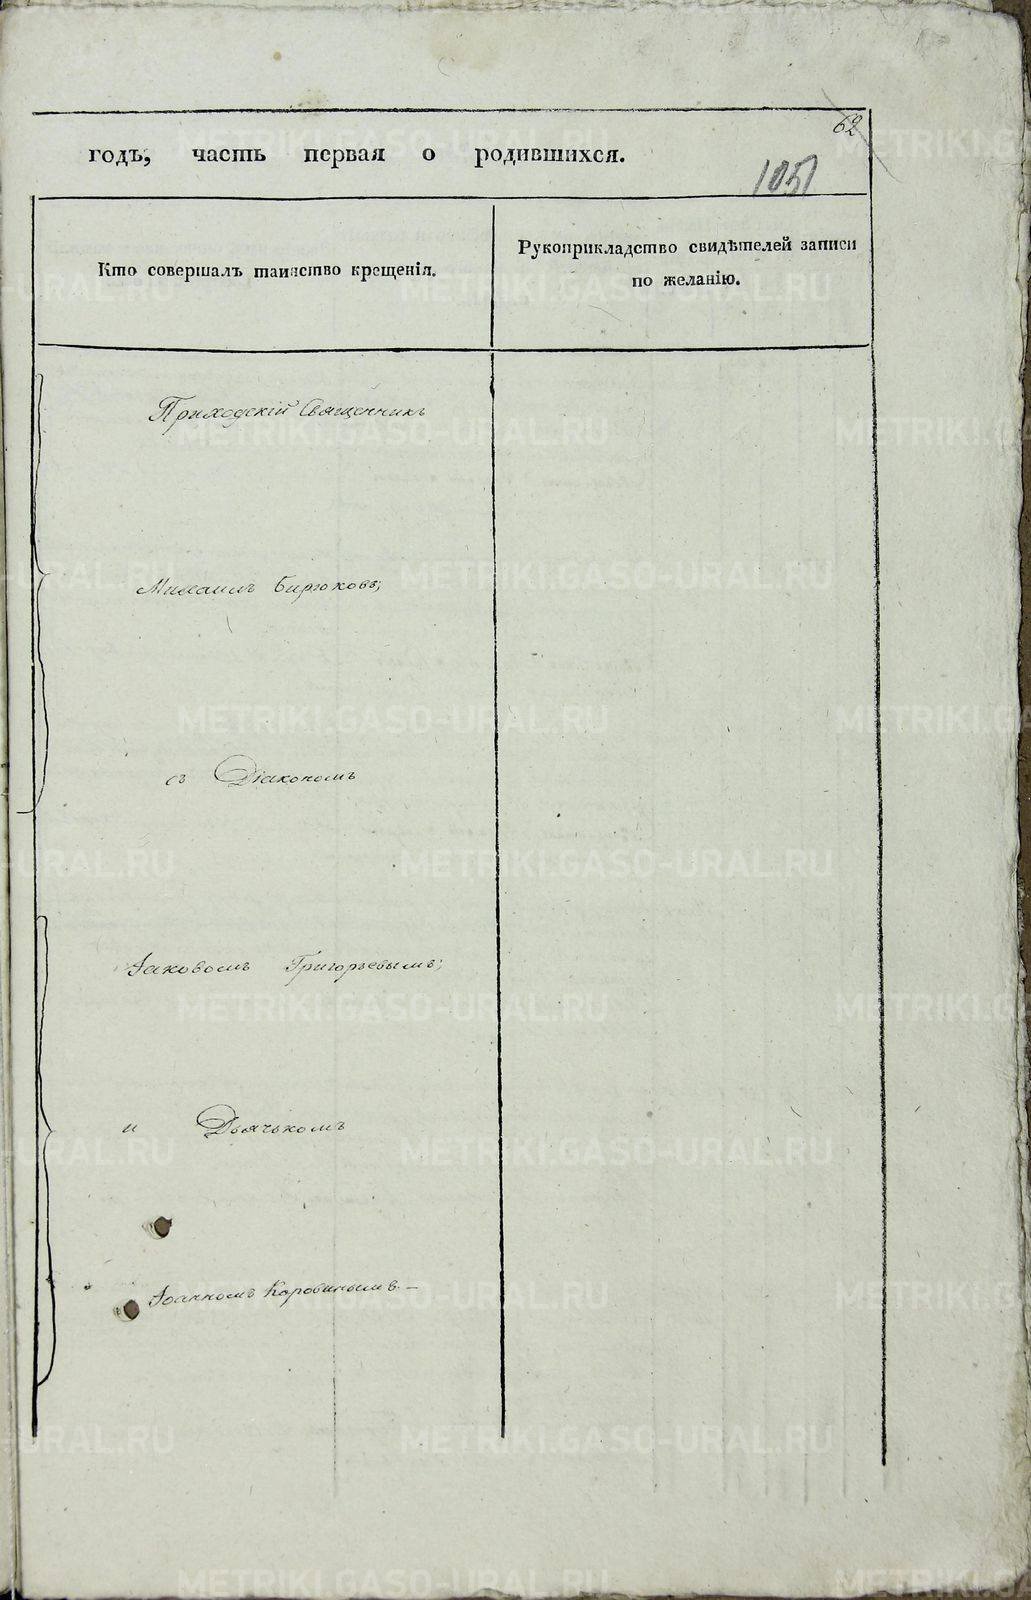 62
годъ, часть первая о родившихся.
1051
Кто совершалъ таинство крещенія.
Рукоприкладство свидѣтелей записи
по желанію.
Приходскій Священникъ
Михаилъ Бирюковъ;
съ Діакономъ
Іаковомъ Григорьевымъ;
и Дьячькомъ
Іоанномъ Коровинымъ. —
METRIKI.GASO-URAL.RU